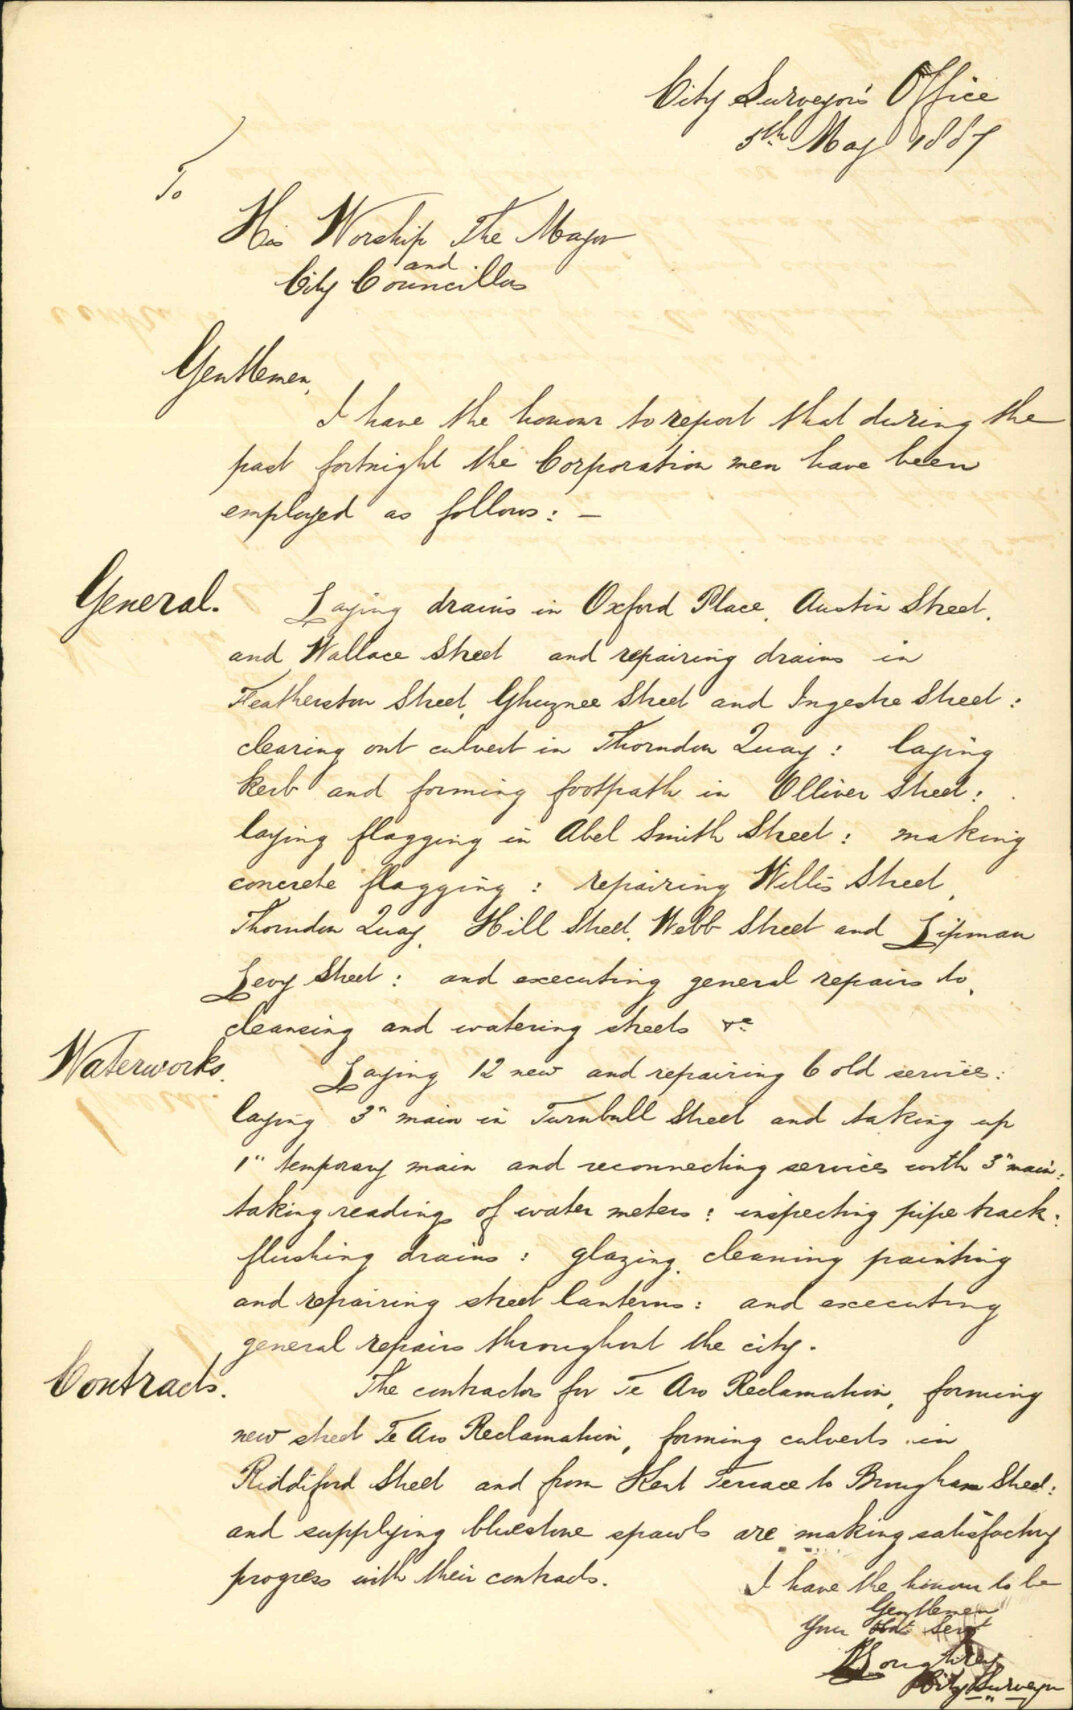 City Surveyor's Office
5th May 1887
To
His Worship The Mayor
and
City Councillors
Gentlemen,
I have the honour to report that during the
past fortnight the Corporation men have been
employed as follows: —
General. Laying drains in Oxford Place, Austin Street,
and Wallace Street and repairing drains in
Featherston Street, Ghuznee Street and Ingestre Street:
clearing out culvert in Thorndon Quay: laying
kerb and forming footpath in Olliver Street:
laying flagging in Abel Smith Street: making
concrete flagging: repairing Willis Street,
Thorndon Quay, Hill Street, Webb Street and Lipman
Levy Street: and executing general repairs to,
cleansing and watering streets &c
Waterworks. Laying 12 new and repairing 6 old service:
laying 3" main in Turnbull Street and taking up
1" temporary main and reconnecting services with 3" main:
taking readings of water meters: inspecting pipe track:
flushing drains: glazing, cleaning painting
and repairing street lanterns: and executing
general repairs throughout the city.
Contracts. The contractors for Te Aro Reclamation, forming
new street Te Aro Reclamation, forming culverts in
Riddiford Street and from Kent Terrace to Brougham Street:
and supplying bluestone spawls are making satisfactory
progress with their contracts.
I have the honour to be
Gentlemen
Your Obt. Servt
Loughrey
City Surveyor